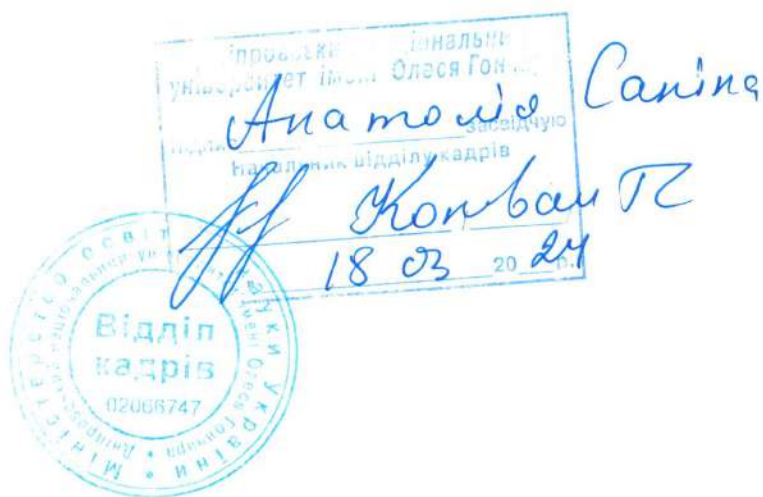 університет імені Олеся Гон
Анатолія Саніна
засвідчую
Начальник відділу кадрів
18 03 20 24 р.
Міністерство освіти і науки України
Дніпровський національний університет імені Олеся Гончара
Відділ
кадрів
02066747